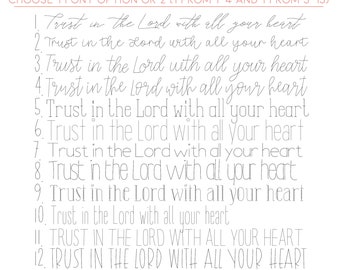 CHOOSE 1 FONT OPTION OR 2 (1 FROM 1-4 AND 1 FROM 5-13)
1. Trust in the Lord with all your heart
2 Trust in the Lord with all your heart
3. Trust in the Lord with all your heart
4. Trust in the Lord with all your heart
5. Trust in the Lord with all your heart
6. Trust in the Lord with all your heart
7 Trust in the Lord with all your heart
8. Trust in the Lord with all your heart
9. Trust in the Lord with all your heart
10. Trust in the Lord with all your heart
11. TRUST IN THE LORD WITH ALL YOUR HEART
12. TRUST IN THE LORD WITH ALL YOUR HEART